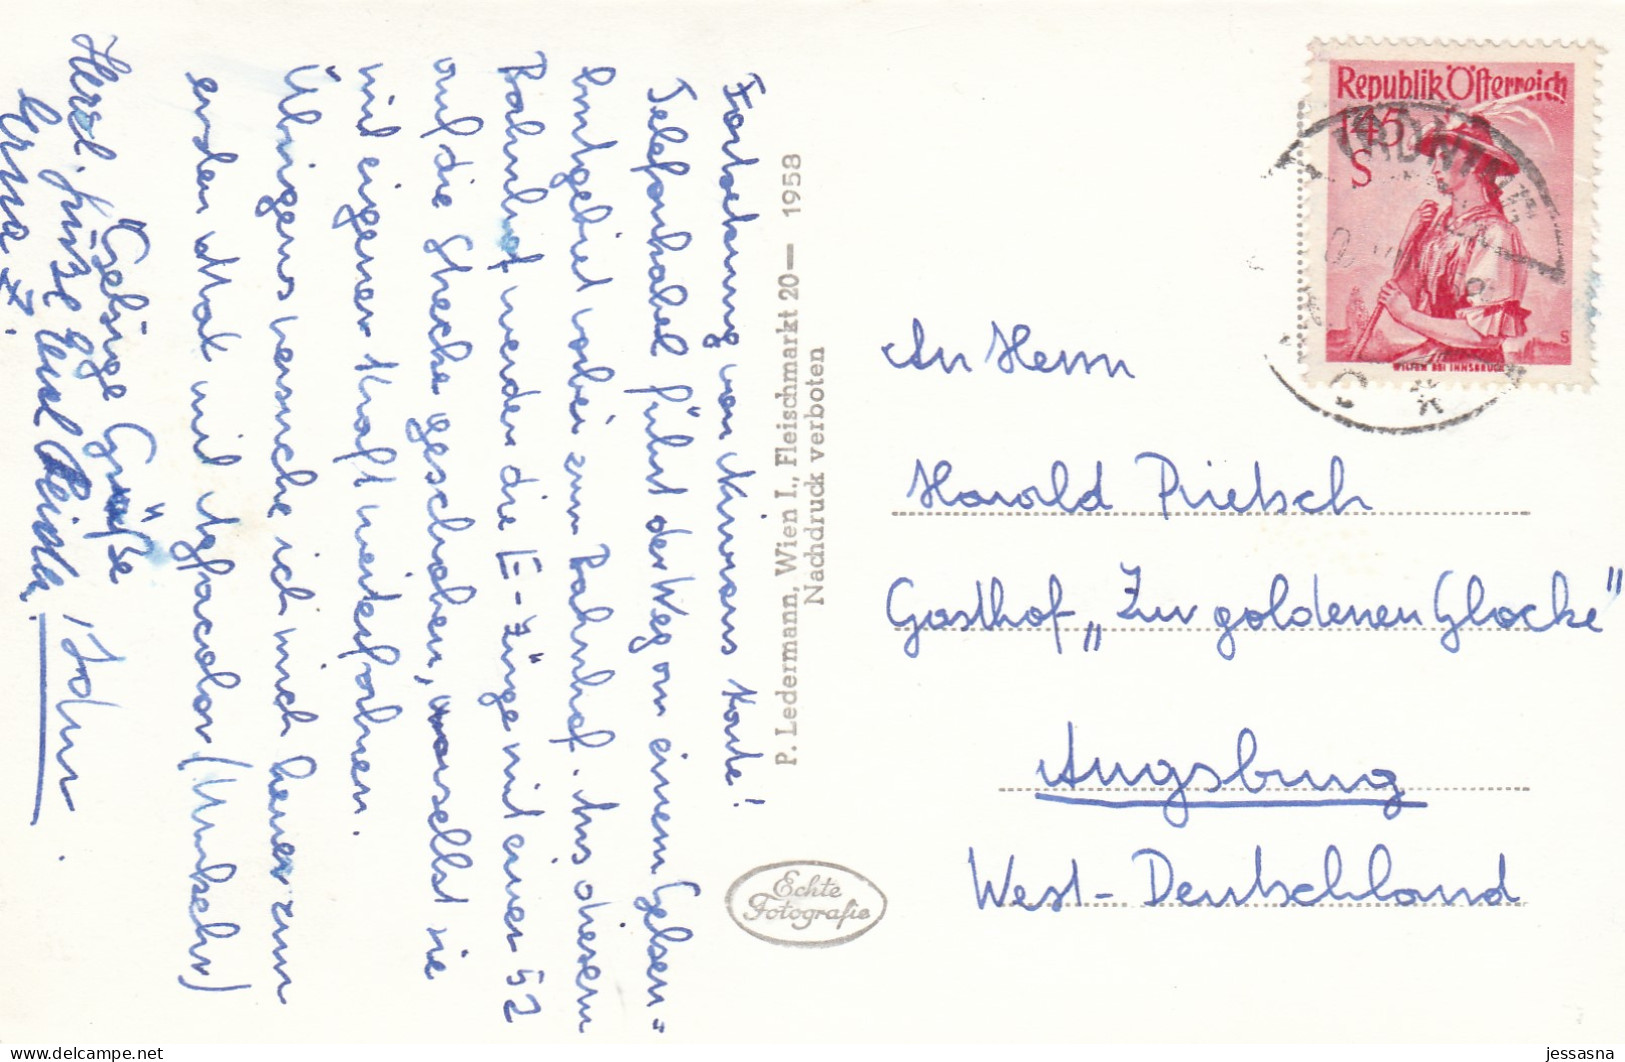 Fortsetzung von Nirvans Karte!
Telefonkabel führt der Weg an einem Gelsen-
brutgebiet vorbei zum Bahnhof. Aus diesem
Bahnhof werden die E-Züge mit einer 52
auf die Strecke geschoben, worselbst sie
mit eigener Kraft weiterfahren.
Übrigens versuche ich mich heuer zum
ersten Mal mit Agfacolor (Umkehr)
Gelsige Grüße
Herzl. Grüße
Erna Z.
P. Ledermann, Wien I., Fleischmarkt 20— 1958
Nachdruck verboten
Echte
Fotografie
Republik Österreich
1·45
S
WILTEN BEI INNSBRUCK
An Herrn
Harald Prietsch
Gasthof „Zur goldenen Glocke"
Augsburg
West-Deutschland
jessasna